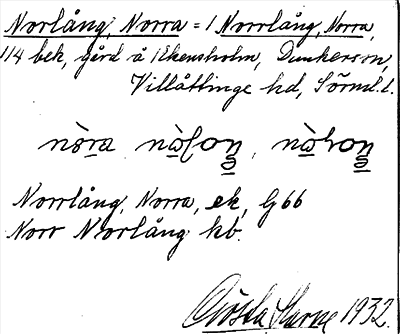 Norlång, Norra = 1 Norrlång, Norra,
1/4 bek, gård å Ekensholm, Dunkersn,
Villåttinge hd, Sörml. l.
nòra nòloŋ, nòroŋ
Norrlång, Norra, ek, G 66
Norr Norlång kb.
Gösta 1932.